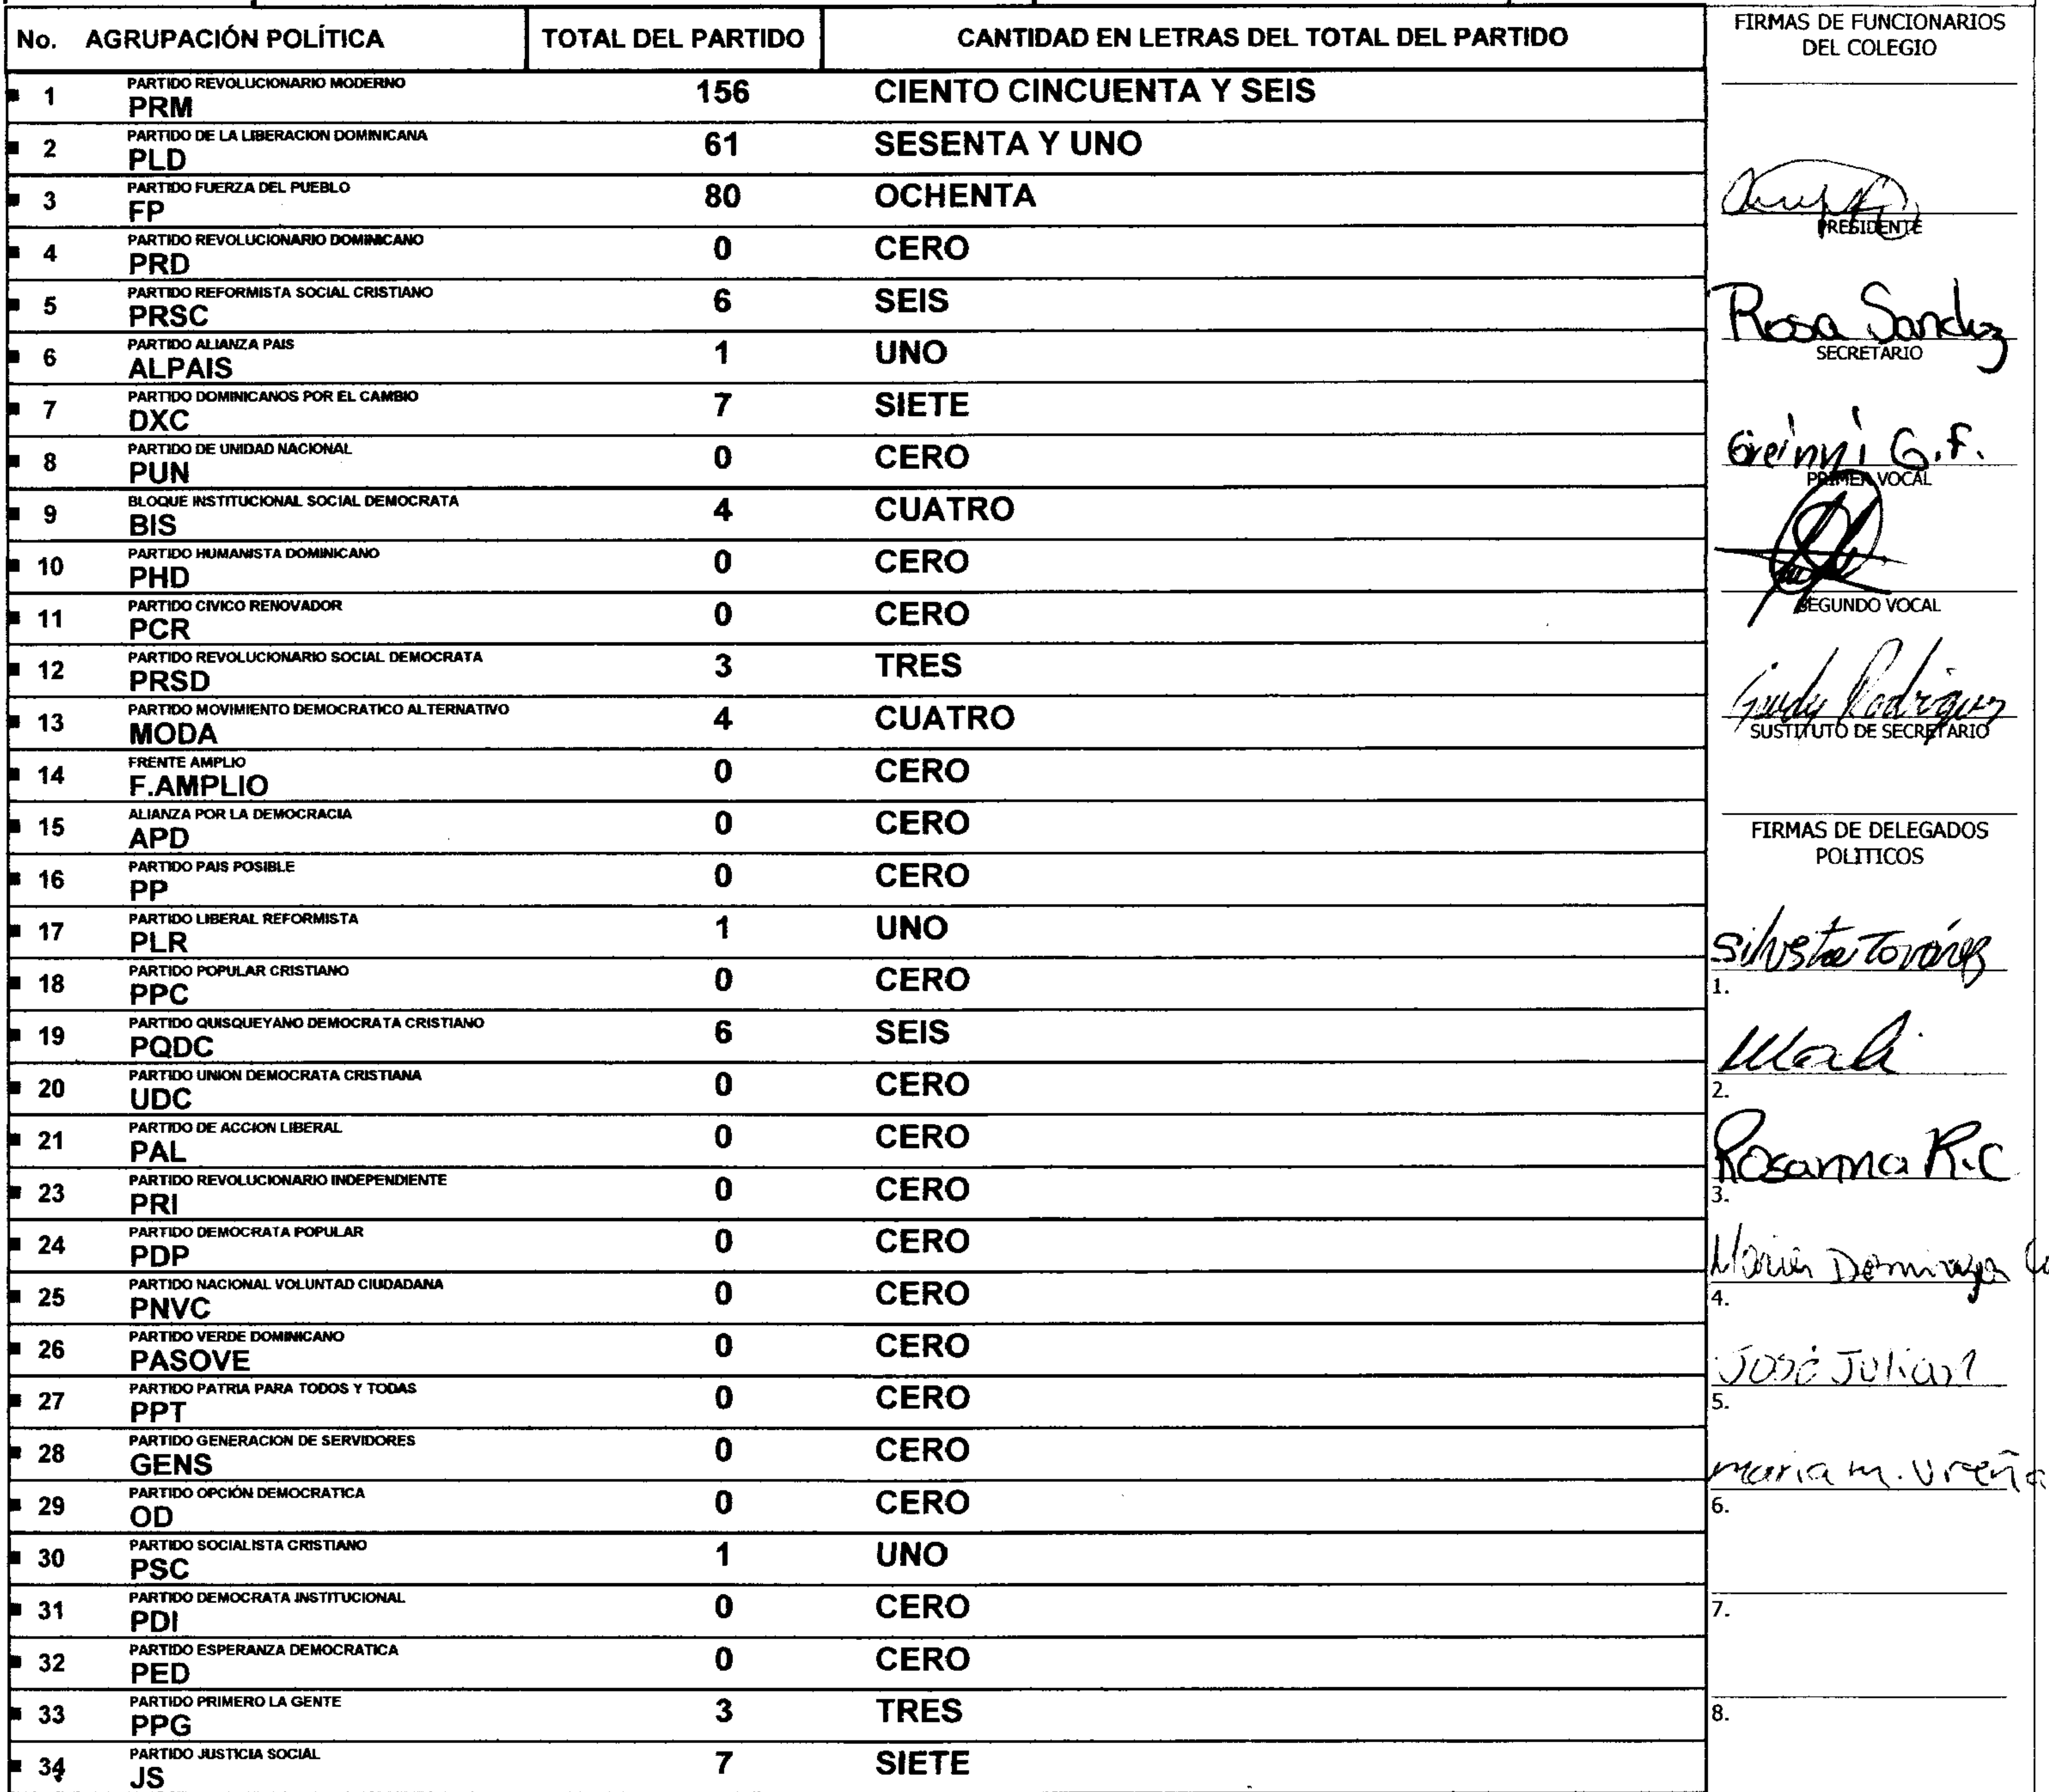 No. AGRUPACIÓN POLÍTICA TOTAL DEL PARTIDO CANTIDAD EN LETRAS DEL TOTAL DEL PARTIDO
PARTIDO REVOLUCIONARIO MODERNO
1 PRM 156 CIENTO CINCUENTA Y SEIS
PARTIDO DE LA LIBERACION DOMINICANA
2 PLD 61 SESENTA Y UNO
PARTIDO FUERZA DEL PUEBLO
3 FP 80 OCHENTA
PARTIDO REVOLUCIONARIO DOMINICANO
4 PRD 0 CERO
PARTIDO REFORMISTA SOCIAL CRISTIANO
5 PRSC 6 SEIS
PARTIDO ALIANZA PAIS
6 ALPAIS 1 UNO
PARTIDO DOMINICANOS POR EL CAMBIO
7 DXC 7 SIETE
PARTIDO DE UNIDAD NACIONAL
8 PUN 0 CERO
BLOQUE INSTITUCIONAL SOCIAL DEMOCRATA
9 BIS 4 CUATRO
PARTIDO HUMANISTA DOMINICANO
10 PHD 0 CERO
PARTIDO CIVICO RENOVADOR
11 PCR 0 CERO
PARTIDO REVOLUCIONARIO SOCIAL DEMOCRATA
12 PRSD 3 TRES
PARTIDO MOVIMIENTO DEMOCRATICO ALTERNATIVO
13 MODA 4 CUATRO
FRENTE AMPLIO
14 F.AMPLIO 0 CERO
ALIANZA POR LA DEMOCRACIA
15 APD 0 CERO
PARTIDO PAIS POSIBLE
16 PP 0 CERO
PARTIDO LIBERAL REFORMISTA
17 PLR 1 UNO
PARTIDO POPULAR CRISTIANO
18 PPC 0 CERO
PARTIDO QUISQUEYANO DEMOCRATA CRISTIANO
19 PQDC 6 SEIS
PARTIDO UNION DEMOCRATA CRISTIANA
20 UDC 0 CERO
PARTIDO DE ACCION LIBERAL
21 PAL 0 CERO
PARTIDO REVOLUCIONARIO INDEPENDIENTE
23 PRI 0 CERO
PARTIDO DEMOCRATA POPULAR
24 PDP 0 CERO
PARTIDO NACIONAL VOLUNTAD CIUDADANA
25 PNVC 0 CERO
PARTIDO VERDE DOMINICANO
26 PASOVE 0 CERO
PARTIDO PATRIA PARA TODOS Y TODAS
27 PPT 0 CERO
PARTIDO GENERACION DE SERVIDORES
28 GENS 0 CERO
PARTIDO OPCIÓN DEMOCRATICA
29 OD 0 CERO
PARTIDO SOCIALISTA CRISTIANO
30 PSC 1 UNO
PARTIDO DEMOCRATA INSTITUCIONAL
31 PDI 0 CERO
PARTIDO ESPERANZA DEMOCRATICA
32 PED 0 CERO
PARTIDO PRIMERO LA GENTE
33 PPG 3 TRES
PARTIDO JUSTICIA SOCIAL
34 JS 7 SIETE
FIRMAS DE FUNCIONARIOS
DEL COLEGIO
PRESIDENTE
Rosa
SECRETARIO
Greinni G.F.
PRIMER VOCAL
SEGUNDO VOCAL
Rodriguez
SUSTITUTO DE SECRETARIO
FIRMAS DE DELEGADOS
POLITICOS
1.
2.
Rosanna R.C
3.
Maria Dominga
4.
José Julian
5.
maria m. Ureña
6.
7.
8.